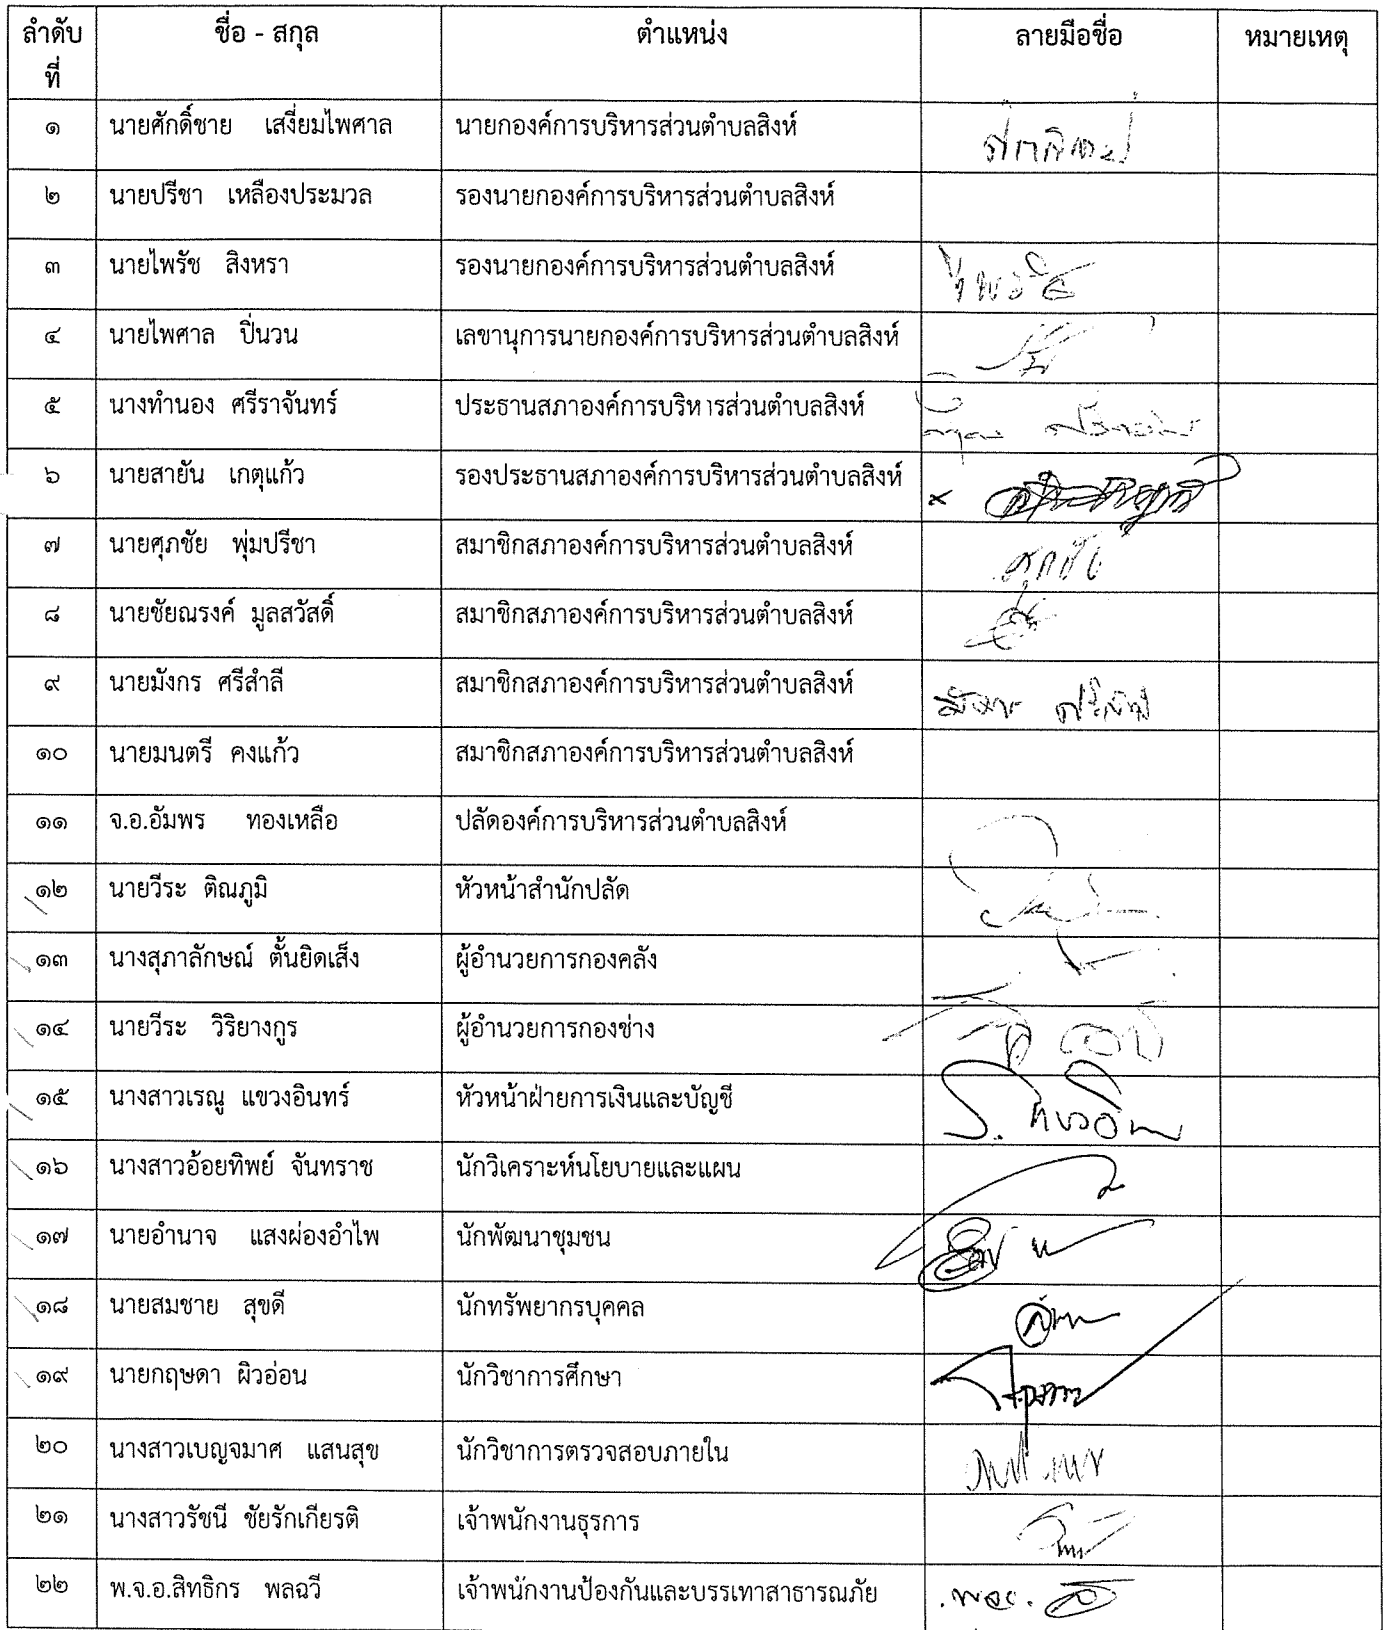 ลำดับที่ ชื่อ - สกุล ตำแหน่ง ลายมือชื่อ หมายเหตุ
๑ นายศักดิ์ชาย เสงี่ยมไพศาล นายกองค์การบริหารส่วนตำบลสิงห์
๒ นายปรีชา เหลืองประมวล รองนายกองค์การบริหารส่วนตำบลสิงห์
๓ นายไพรัช สิงหรา รองนายกองค์การบริหารส่วนตำบลสิงห์
๔ นายไพศาล ปิ่นวน เลขานุการนายกองค์การบริหารส่วนตำบลสิงห์
๕ นางทำนอง ศรีราจันทร์ ประธานสภาองค์การบริหารส่วนตำบลสิงห์
๖ นายสายัน เกตุแก้ว รองประธานสภาองค์การบริหารส่วนตำบลสิงห์
๗ นายศุภชัย พุ่มปรีชา สมาชิกสภาองค์การบริหารส่วนตำบลสิงห์ ศุภชัย
๘ นายชัยณรงค์ มูลสวัสดิ์ สมาชิกสภาองค์การบริหารส่วนตำบลสิงห์
๙ นายมังกร ศรีสำลี สมาชิกสภาองค์การบริหารส่วนตำบลสิงห์
๑๐ นายมนตรี คงแก้ว สมาชิกสภาองค์การบริหารส่วนตำบลสิงห์
๑๑ จ.อ.อัมพร ทองเหลือ ปลัดองค์การบริหารส่วนตำบลสิงห์
๑๒ นายวีระ ติณภูมิ หัวหน้าสำนักปลัด
๑๓ นางสุภาลักษณ์ ตั้นยิดเส็ง ผู้อำนวยการกองคลัง
๑๔ นายวีระ วิริยางกูร ผู้อำนวยการกองช่าง
๑๕ นางสาวเรณู แขวงอินทร์ หัวหน้าฝ่ายการเงินและบัญชี
๑๖ นางสาวอ้อยทิพย์ จันทราช นักวิเคราะห์นโยบายและแผน
๑๗ นายอำนาจ แสงผ่องอำไพ นักพัฒนาชุมชน
๑๘ นายสมชาย สุขดี นักทรัพยากรบุคคล
๑๙ นายกฤษดา ผิวอ่อน นักวิชาการศึกษา
๒๐ นางสาวเบญจมาศ แสนสุข นักวิชาการตรวจสอบภายใน
๒๑ นางสาวรัชนี ชัยรักเกียรติ เจ้าพนักงานธุรการ
๒๒ พ.จ.อ.สิทธิกร พลฉวี เจ้าพนักงานป้องกันและบรรเทาสาธารณภัย